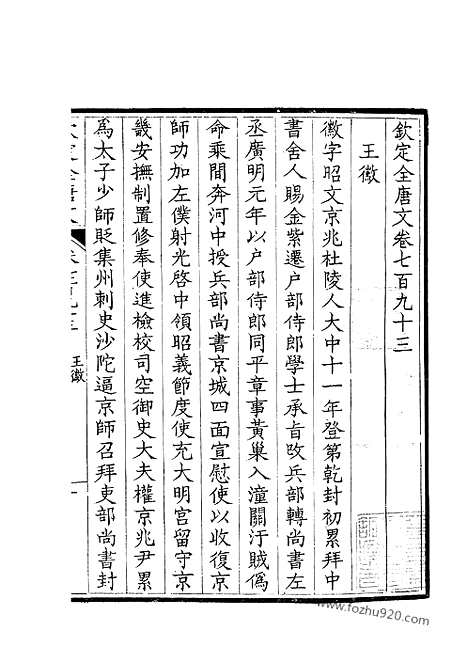 欽定全唐文卷七百九十三
王徽
徽字昭文京兆杜陵人大中十一年登第乾封初累拜中
書舍人賜金紫遷户部侍郎學士承旨改兵部轉尚書左
丞廣明元年以户部侍郎同平章事黃巢入潼關汙賊偽
命乘間奔河中授兵部尚書京城四面宣慰使以收復京
師功加左僕射光啓中領昭義節度使充大明宫留守京
畿安撫制置修奉使進檢校司空御史大夫權京兆尹累
為太子少師貶集州刺史沙陀逼京師召拜吏部尚書封
欽定全唐文
卷七百九十三
王徽
一
www.fozhu920.com